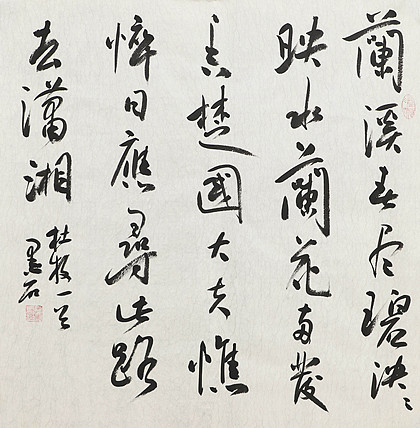 蘭溪春尽碧泱〻
映水蘭花雨發
香楚國大夫憔
悴日應尋此路
去瀟湘
杜牧一首
墨石